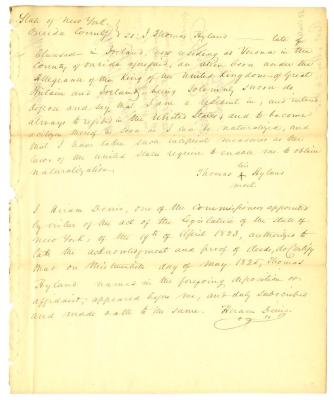 State of New York,
Oneida County } ss: I Thomas Hyland late of
in Ireland, now residing at Verona in the
County of oneida aforesaid, an alien born under the
Allegiance of the King of the United Kingdom of Great
Britain and Ireland being Solemnly sworn do
depose and say that I am a resident in, and intend
always to reside in the United States, and to become
a citizen thereof as soon as I can be naturalized, and
that I have taken such incipient measures as the
laws of the united States require to enable me to obtain
naturalization.
his
Thomas + Hyland
mark
I Hiram Denio, one of the Commissioners appointed
by virtue of the act of the legislature of the State of
New York, of the 17th of April 1823, authorized to
take the acknowledgment and proof of deeds, do Certify
that on this day of May 1825, Thomas
Hyland named in the foregoing deposition or
affidavit, appeared before me, and duly subscribed
and made oath to the same. Hiram Denio